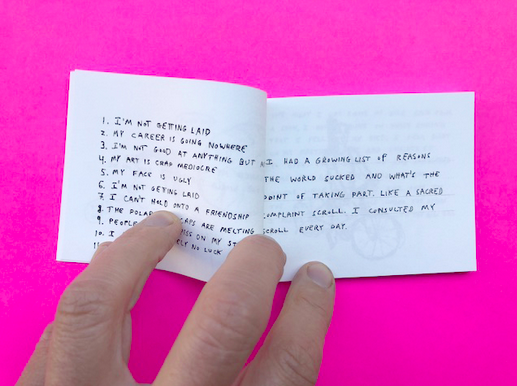 1. I'M NOT GETTING LAID
2. MY CAREER IS GOING NOWHERE
3. I'M NOT GOOD AT ANYTHING BUT
4. MY ART IS CRAP MEDIOCRE
5. MY FACE IS UGLY
6. I'M NOT GETTING LAID
7. I CAN'T HOLD ONTO A FRIENDSHIP
8. THE POLAR CAPS ARE MELTING
9. PEOPLE ON MY
10. I NO LUCK
11
I HAD A GROWING LIST OF REASONS
THE WORLD SUCKED AND WHAT'S THE
POINT OF TAKING PART. LIKE A SACRED
COMPLAINT SCROLL. I CONSULTED MY
SCROLL EVERY DAY.